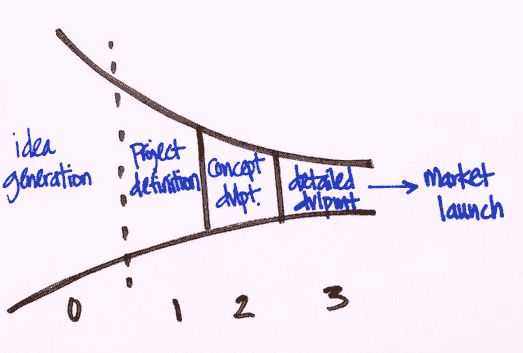 idea
generation
project
definition
concept
dvlpt.
detailed
dvlpmt
market
launch
0
1
2
3